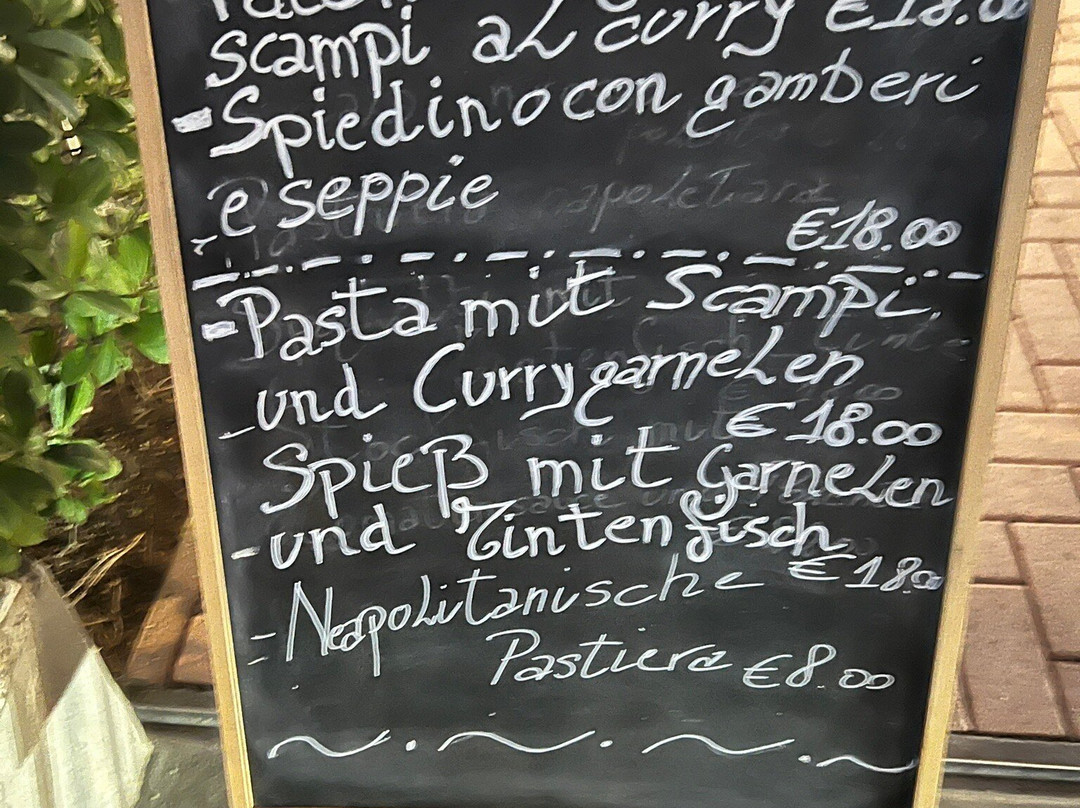 scampi al curry €18.00
- Spiedino con gamberi
e seppie
€18.00
- Pasta mit Scampi
und Currygarnelen
€18.00
Spieß mit Garnelen
- und Tintenfisch
€18.00
- Neapolitanische
Pastiera €8.00